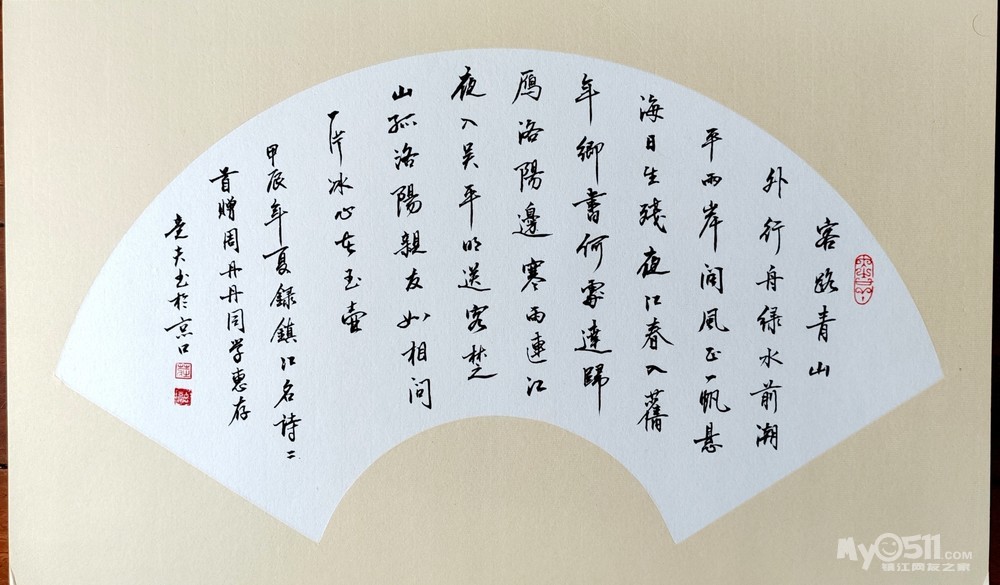 客路青山
外行舟绿水前潮
平兩岸闊風正一帆懸
海日生殘夜江春入舊
年鄉書何處達歸
鴈洛陽邊寒雨連江
夜入吴平明送客楚
山孤洛陽親友如相问
一片冰心在玉壶
甲辰年夏録鎮江名诗二
首赠周丹丹同学惠存
尧夫书於京口
My0511.COM
镇江网友之家